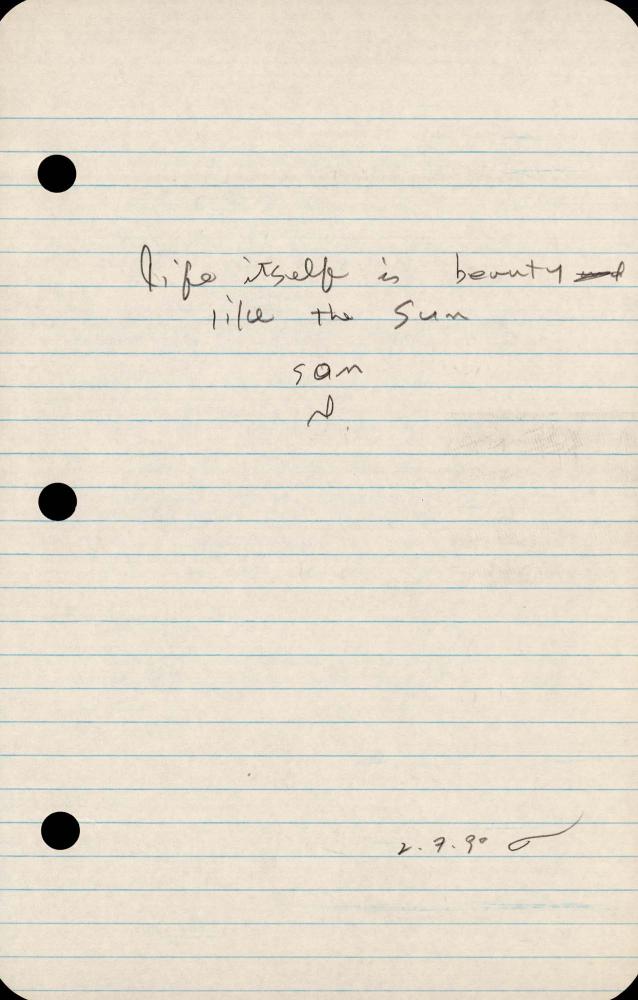 life itself is beauty
like the sun
san
2.7.90